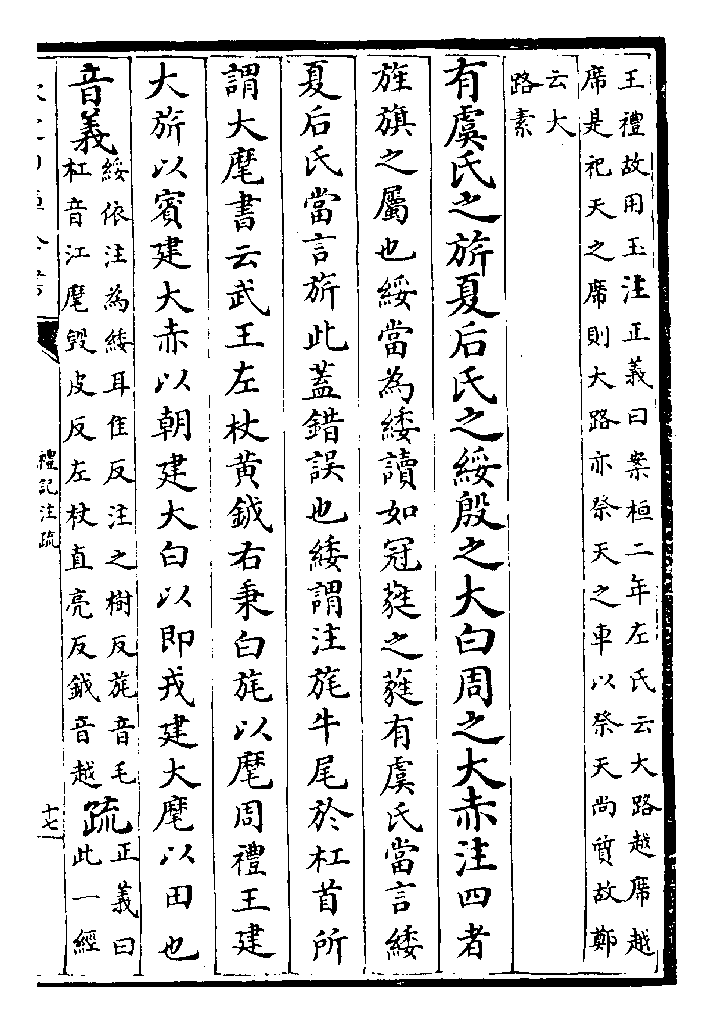 王禮故用玉注正義曰案桓二年左氏云大路越席越
席是祀天之席則大路亦祭天之車以祭天尚質故鄭
云大
路素
有虞氏之旂夏后氏之綏殷之大白周之大赤注四者
旌旗之屬也綏當為緌讀如冠蕤之蕤有虞氏當言緌
夏后氏當言旂此蓋錯誤也緌謂注旄牛尾於杠首所
謂大麾書云武王左杖黃鉞右秉白旄以麾周禮王建
大旂以賓建大赤以朝建大白以即戎建大麾以田也
音義綏依注為緌耳隹反注之樹反旄音毛
杠音江麾毀皮反左杖直亮反鉞音越
疏正義曰
此一經
禮記注疏
十七